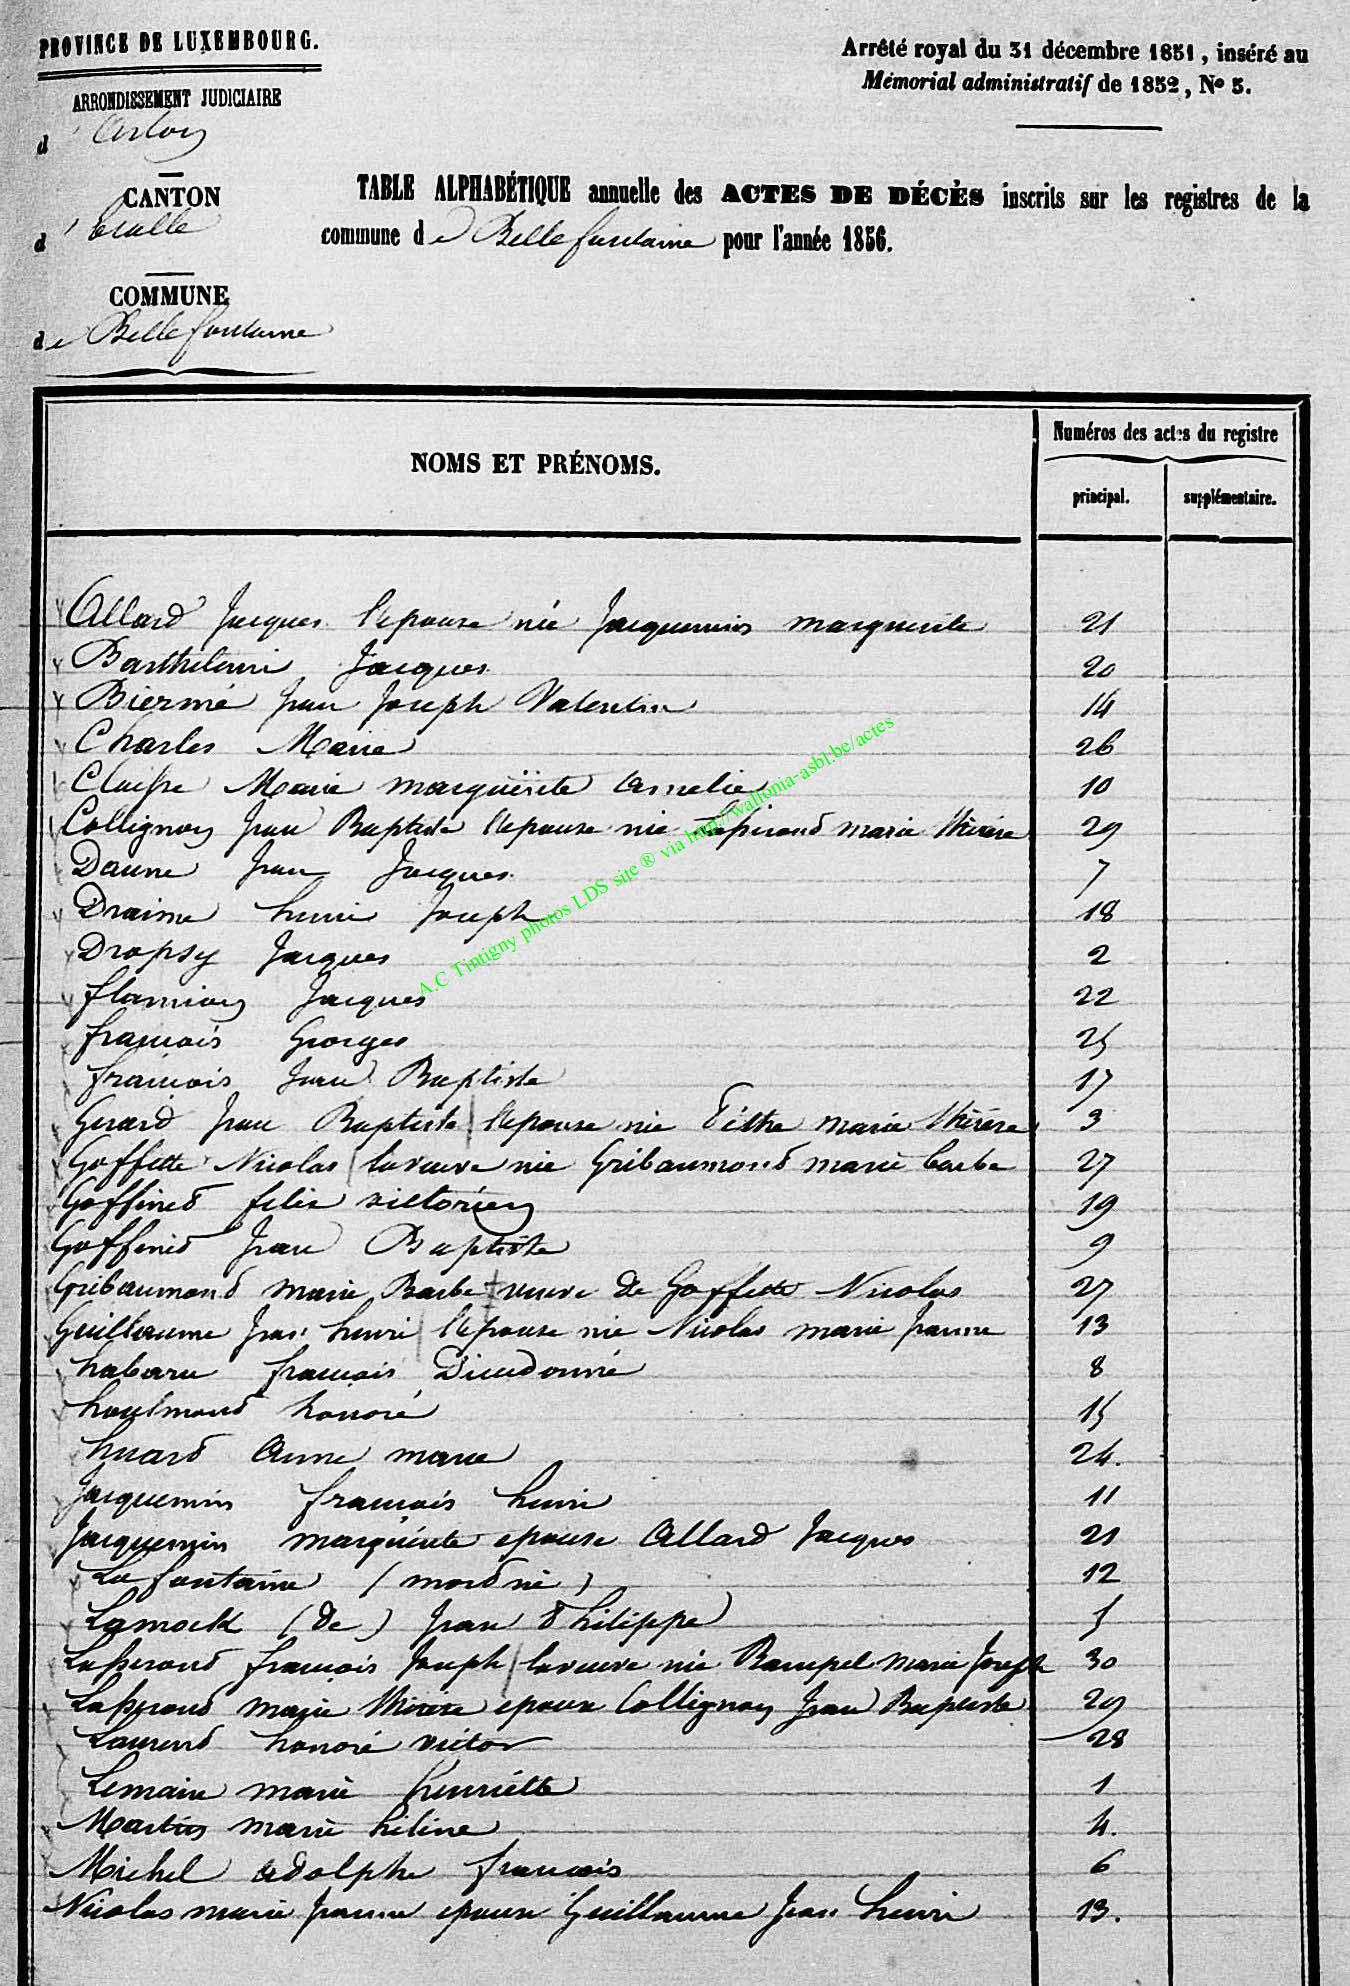 PROVINCE DE LUXEMBOURG.
Arrêté royal du 31 décembre 1851, inséré au
Mémorial administratif de 1852, No 5.
ARRONDISSEMENT JUDICIAIRE
d'Arlon
CANTON
d'Etalle
COMMUNE
de Bellefontaine
TABLE ALPHABÉTIQUE annuelle des ACTES DE DÉCÈS inscrits sur les registres de la
commune de Bellefontaine pour l'année 1856.
NOMS ET PRÉNOMS.
Numéros des actes du registre
principal. supplémentaire.
Allard Jacques l'epouse née Jacquemin marguerite 21
Barthelemi Jacques 20
Biermé Jean Joseph Valentin 14
Charles Marie 26
Claisse Marie marguërite Amelie 10
Collignon Jean Baptiste l'epouse née marie thérèse 29
Daune Jean Jacques 7
Draime henri Joseph 18
Dropsy Jacques 2
flamion Jacques 22
francois Georges 25
francois Jean Baptiste 17
Gerard Jean Baptiste l'epouse née marie thérèse 3
Goffette Nicolas la veuve née Gribaumond marie barbe 27
Goffined felix victorien 19
Goffined Jean Baptiste 9
Gribaumond marie Barbe veuve de Goffette Nicolas 27
Guillaume Jean henri l'epouse née Nicolas marie Jeanne 13
habaru francois Dieudonné 8
houlmond honoré 15
huard Anne marie 24.
Jacquemin francois henri 11
Jacquemin marguérite epouse Allard Jacques 21
Lafontaine (mord né) 12
Lamock (de) Jean Philippe 5
Lasserand francois Joseph la veuve née Rampel marie Joseph 30
Lasserand marie thérese epoux Collignon Jean Baptiste 29
Laurend honoré victor 28
Lemaire marie henriette 1
Martin marie héline 4.
Michel adolphe francois 6
Nicolas marie Jeanne epoux Guillaume Jean henri 13.
A.C Tintigny photos LDS site ® via http://wallonia-asbl.be/actes